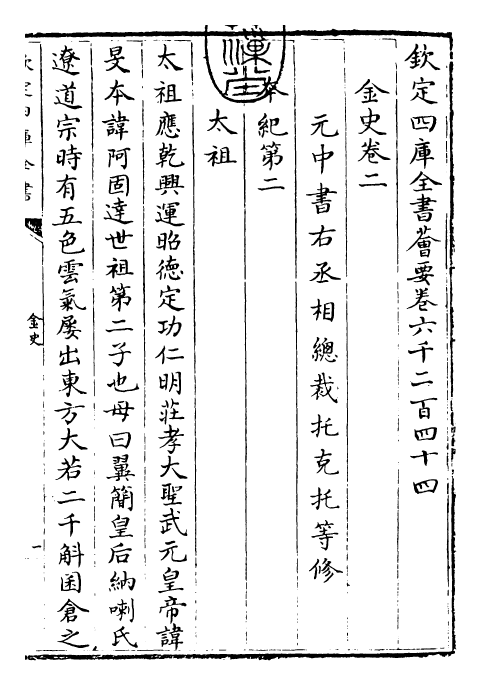 欽定四庫全書薈要卷六千二百四十四
金史卷二
元中書右丞相總裁托克托等修
本紀第二
太祖
太祖應乾興運昭德定功仁明莊孝大聖武元皇帝諱
旻本諱阿固達世祖第二子也母曰翼簡皇后納喇氏
遼道宗時有五色雲氣屢出東方大若二千斛囷倉之
金史
一